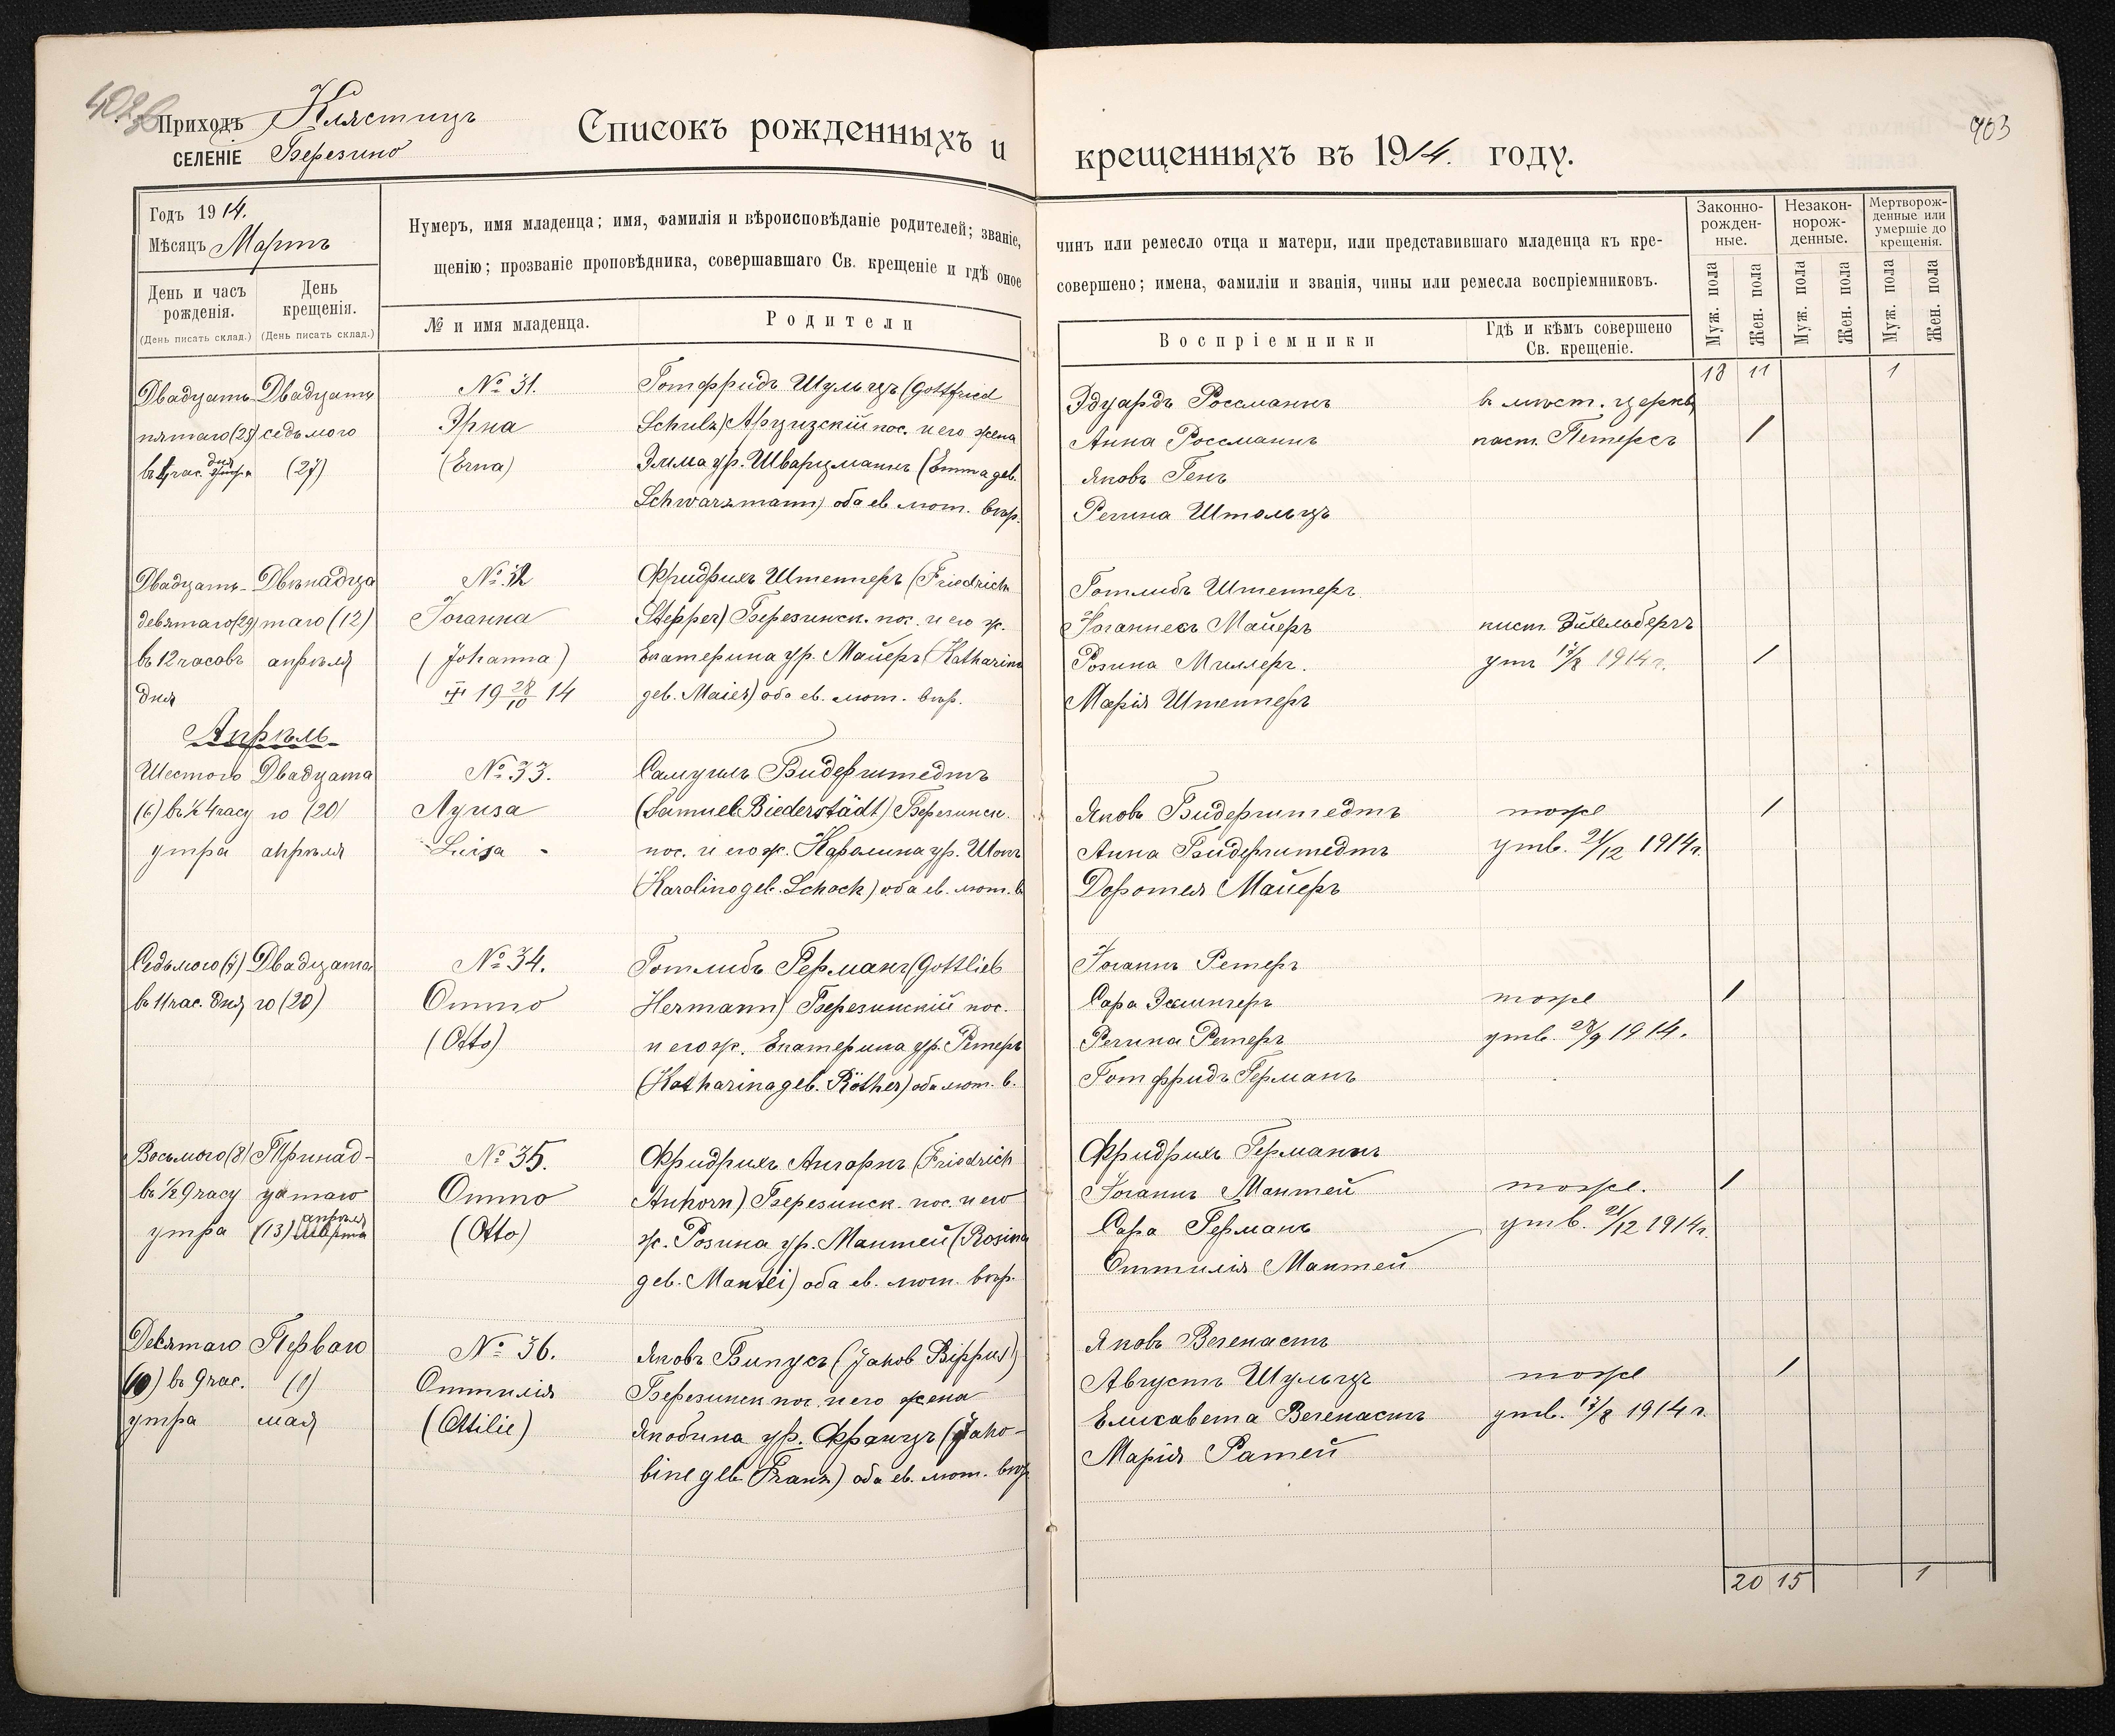 Приходъ Клястицъ
селеніе Березино
Списокъ рожденныхъ и крещенныхъ въ 1914. году.
903
Годъ 1914.
Мѣсяцъ Мартъ
Нумеръ, имя младенца; имя, фамилія и вѣроисповѣданіе родителей; званіе, чинъ или ремесло отца и матери, или представившаго младенца къ кре-
щенію; прозваніе проповѣдника, совершавшаго Св. крещеніе и гдѣ оное совершено; имена, фамиліи и званія, чины или ремесла воспріемниковъ.
Законно-
рожден-
ные.
Незакон-
норож-
денные.
Мертворож-
денные или
умершіе до
крещенія.
День и часъ
рожденія.
(День писать склад.)
День
крещенія.
(День писать склад.)
№ и имя младенца.
Родители
Воспріемники
Гдѣ и кѣмъ совершено
Св. крещеніе.
Муж. пола
Жен. пола
Муж. пола
Жен. пола
Муж. пола
Жен. пола
18 11 1
Двадцать
пятаго (25)
Двадцать
седьмого
(27)
№ 31.
Эрна
(Erna)
Готфридъ Шульцъ (Gottfried
Schulz) Арцизскій пос. и его жена
Эмма ур. Шварцманнъ (Emma geb.
Schwarzmann) оба ев. лют. вѣр.
Эдуардъ Россманнъ
Анна Россманнъ
Яковъ Генъ
Регина Штольцъ
в мѣст. церкв
паст. Петерсъ
1
Двадцать-
девятаго (29)
въ 12 часовъ
дня
Двѣнадца
таго (12)
апрѣля
№ 32
Іоганна
(Johanna)
19 28/10 14
Фридрихъ Штепперъ (Friedrich
Stepper) Березинск. пос. и его ж.
Екатерина ур. Майеръ (Katharina
geb. Maier) оба ев. лют. вѣр.
Готлибъ Штепперъ.
Іоганнесъ Майеръ
Розина Миллеръ.
Марія Штепперъ
пист. Эйхельбергъ
утв 17/8 1914 г.
1
Апрѣль
Шестого
(6) въ ½ 4 часу
утра
Двадцата
го (20)
апрѣля
№ 33.
Луиза
Luisa -
Самуилъ Бидерштедтъ
(Samuel Biederstädt) Березинск.
пос. и его ж. Каролина ур. Шокъ
(Karolina geb. Schock) оба ев. лют. в
Яковъ Бидерштедтъ
Анна Бидерштедтъ
Доротея Майеръ
тоже
утв. 21/12 1914 г.
1
Седьмого (7)
въ 11 час. дня
Двадцата
го (20)
№ 34.
Отто
(Otto)
Готлибъ Германъ (Gottlieb
Hermann) Березинскій пос.
и его ж. Екатерина ур. Ретеръ
(Katharina geb. Röther) оба лют. в.
Іоганнъ Ретеръ
Сара Эслингеръ
Регина Ретеръ
Готфридъ Германъ
тоже
утв. 28/9 1914.
1
Восьмого (8)
въ ½ 9 часу
утра
Тринад-
цатаго
апрѣля
(13) Марта
№ 35.
Отто
(Otto)
Фридрихъ Ангорнъ (Friedrich
Anhorn) Березинск. пос. и его
ж. Розина ур. Мантей (Rosina
geb. Mantei) оба ев. лют. вѣр.
Фридрихъ Германнъ
Іоганнъ Мантей
Сара Германъ
Оттилія Мантей
тоже.
утв. 21/12 1914 г.
1
Девятаго
въ 9 час.
утра
Перваго
(1)
мая
№ 36.
Оттилія
(Ottilie)
Яковъ Бипусъ (Jakob Bippus)
Березинск пос. и его жена
Якобина ур. Францъ (Jako-
bine geb. Franz) оба ев. лют. вѣр
Яковъ Вегенастъ
Августъ Шульцъ
Елисавета Вегенастъ
Марія Ратей
тоже
утв. 17/8 1914 г.
1
20 15 1